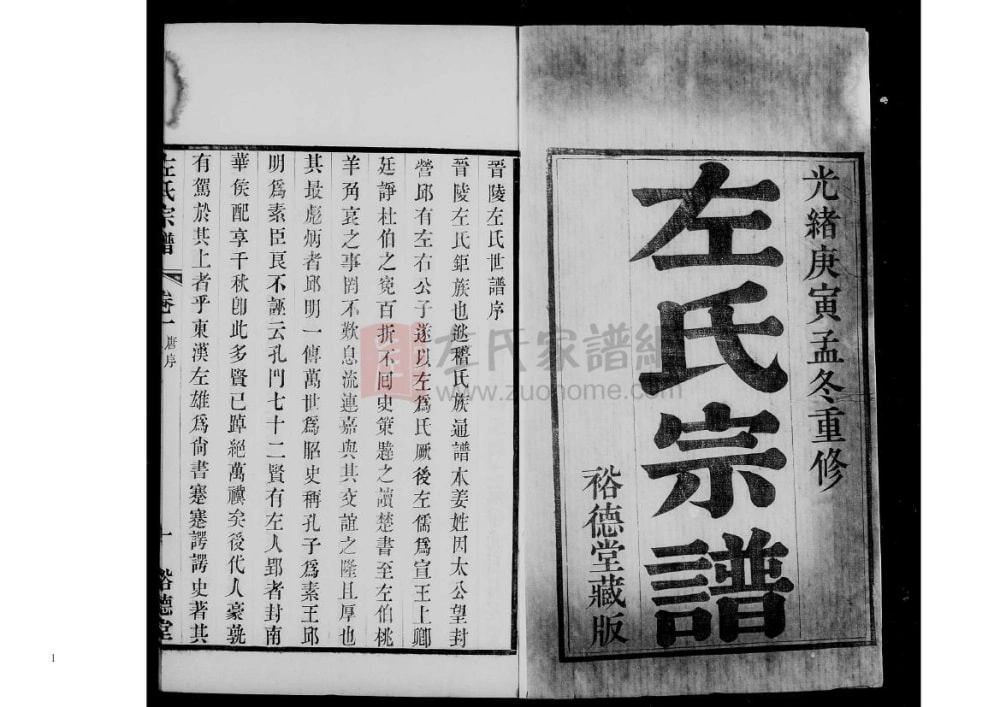 光緒庚寅孟冬重修
左氏宗譜
裕德堂藏版
晉陵左氏世譜序
晉陵左氏鉅族也越稽氏族通譜本姜姓因太公望封
營邱有左右公子遂以左爲氏厥後左儒爲宣王上卿
廷諍杜伯之寃百折不回史策韙之讀楚書至左伯桃
羊角哀之事罔不歎息流連嘉與其交誼之隆且厚也
其最彪炳者邱明一傳萬世爲昭史稱孔子爲素王邱
明爲素臣良不誣云孔門七十二賢有左人郢者封南
華侯配享千秋卽此多賢已踔絕萬禩矣後代人豪孰
有駕於其上者乎東漢左雄爲尙書蹇蹇諤諤史著其
左氏宗譜
卷一
唐序
一
裕德堂
左氏家譜網
www.zuohome.com
1